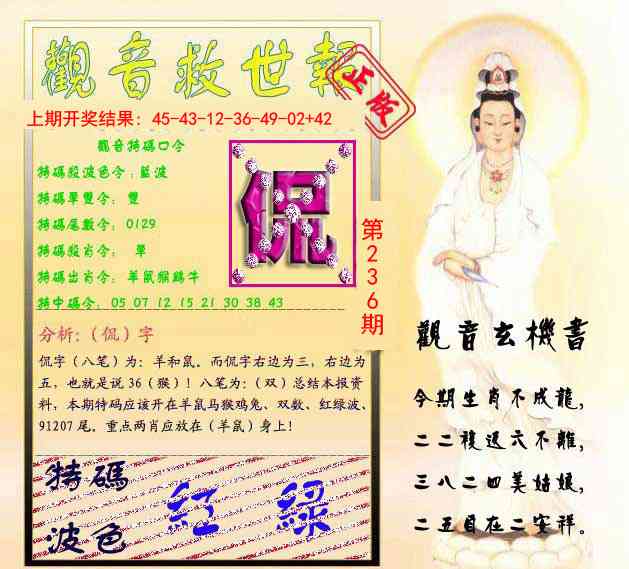 觀音救世報
正版
上期开奖结果: 45-43-12-36-49-02+42
觀音特碼口令
特碼殺波色令:藍波
特碼單雙令: 雙
特碼尾數令: 0129
特碼殺肖令: 單
特碼出肖令: 羊鼠猴鷄牛
特中碼令: 05 07 12 15 21 30 38 43
侃
第236期
分析:(侃)字
侃字(八笔)为: 羊和鼠。而侃字右边为三, 右边为
五, 也就是说 36(猴)! 八笔为:(双)总结本报资
料: 本期特码应该开在羊鼠马猴鸡兔、双数、红绿波、
91207 尾。重点两肖应放在(羊鼠)身上!
特碼
波色
紅 綠
觀音玄機書
今期生肖不成龍,
二二複送六不離,
三八二四美姑娘,
二五自在二安祥。